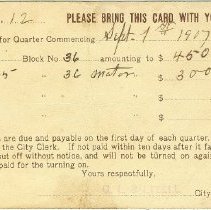 . 12 PLEASE BRING THIS CARD WITH YO
for Quarter Commencing Sept. 1st 1917
Block No. 36 amounting to $ 4 50
5 " 36 Meter $ 3 00
$
are due and payable on the first day of each quarter.
the City Clerk. If not paid within ten days after it fa
ut off without notice, and will not be turned on again
paid for the turning on.
Yours respectfully,
City